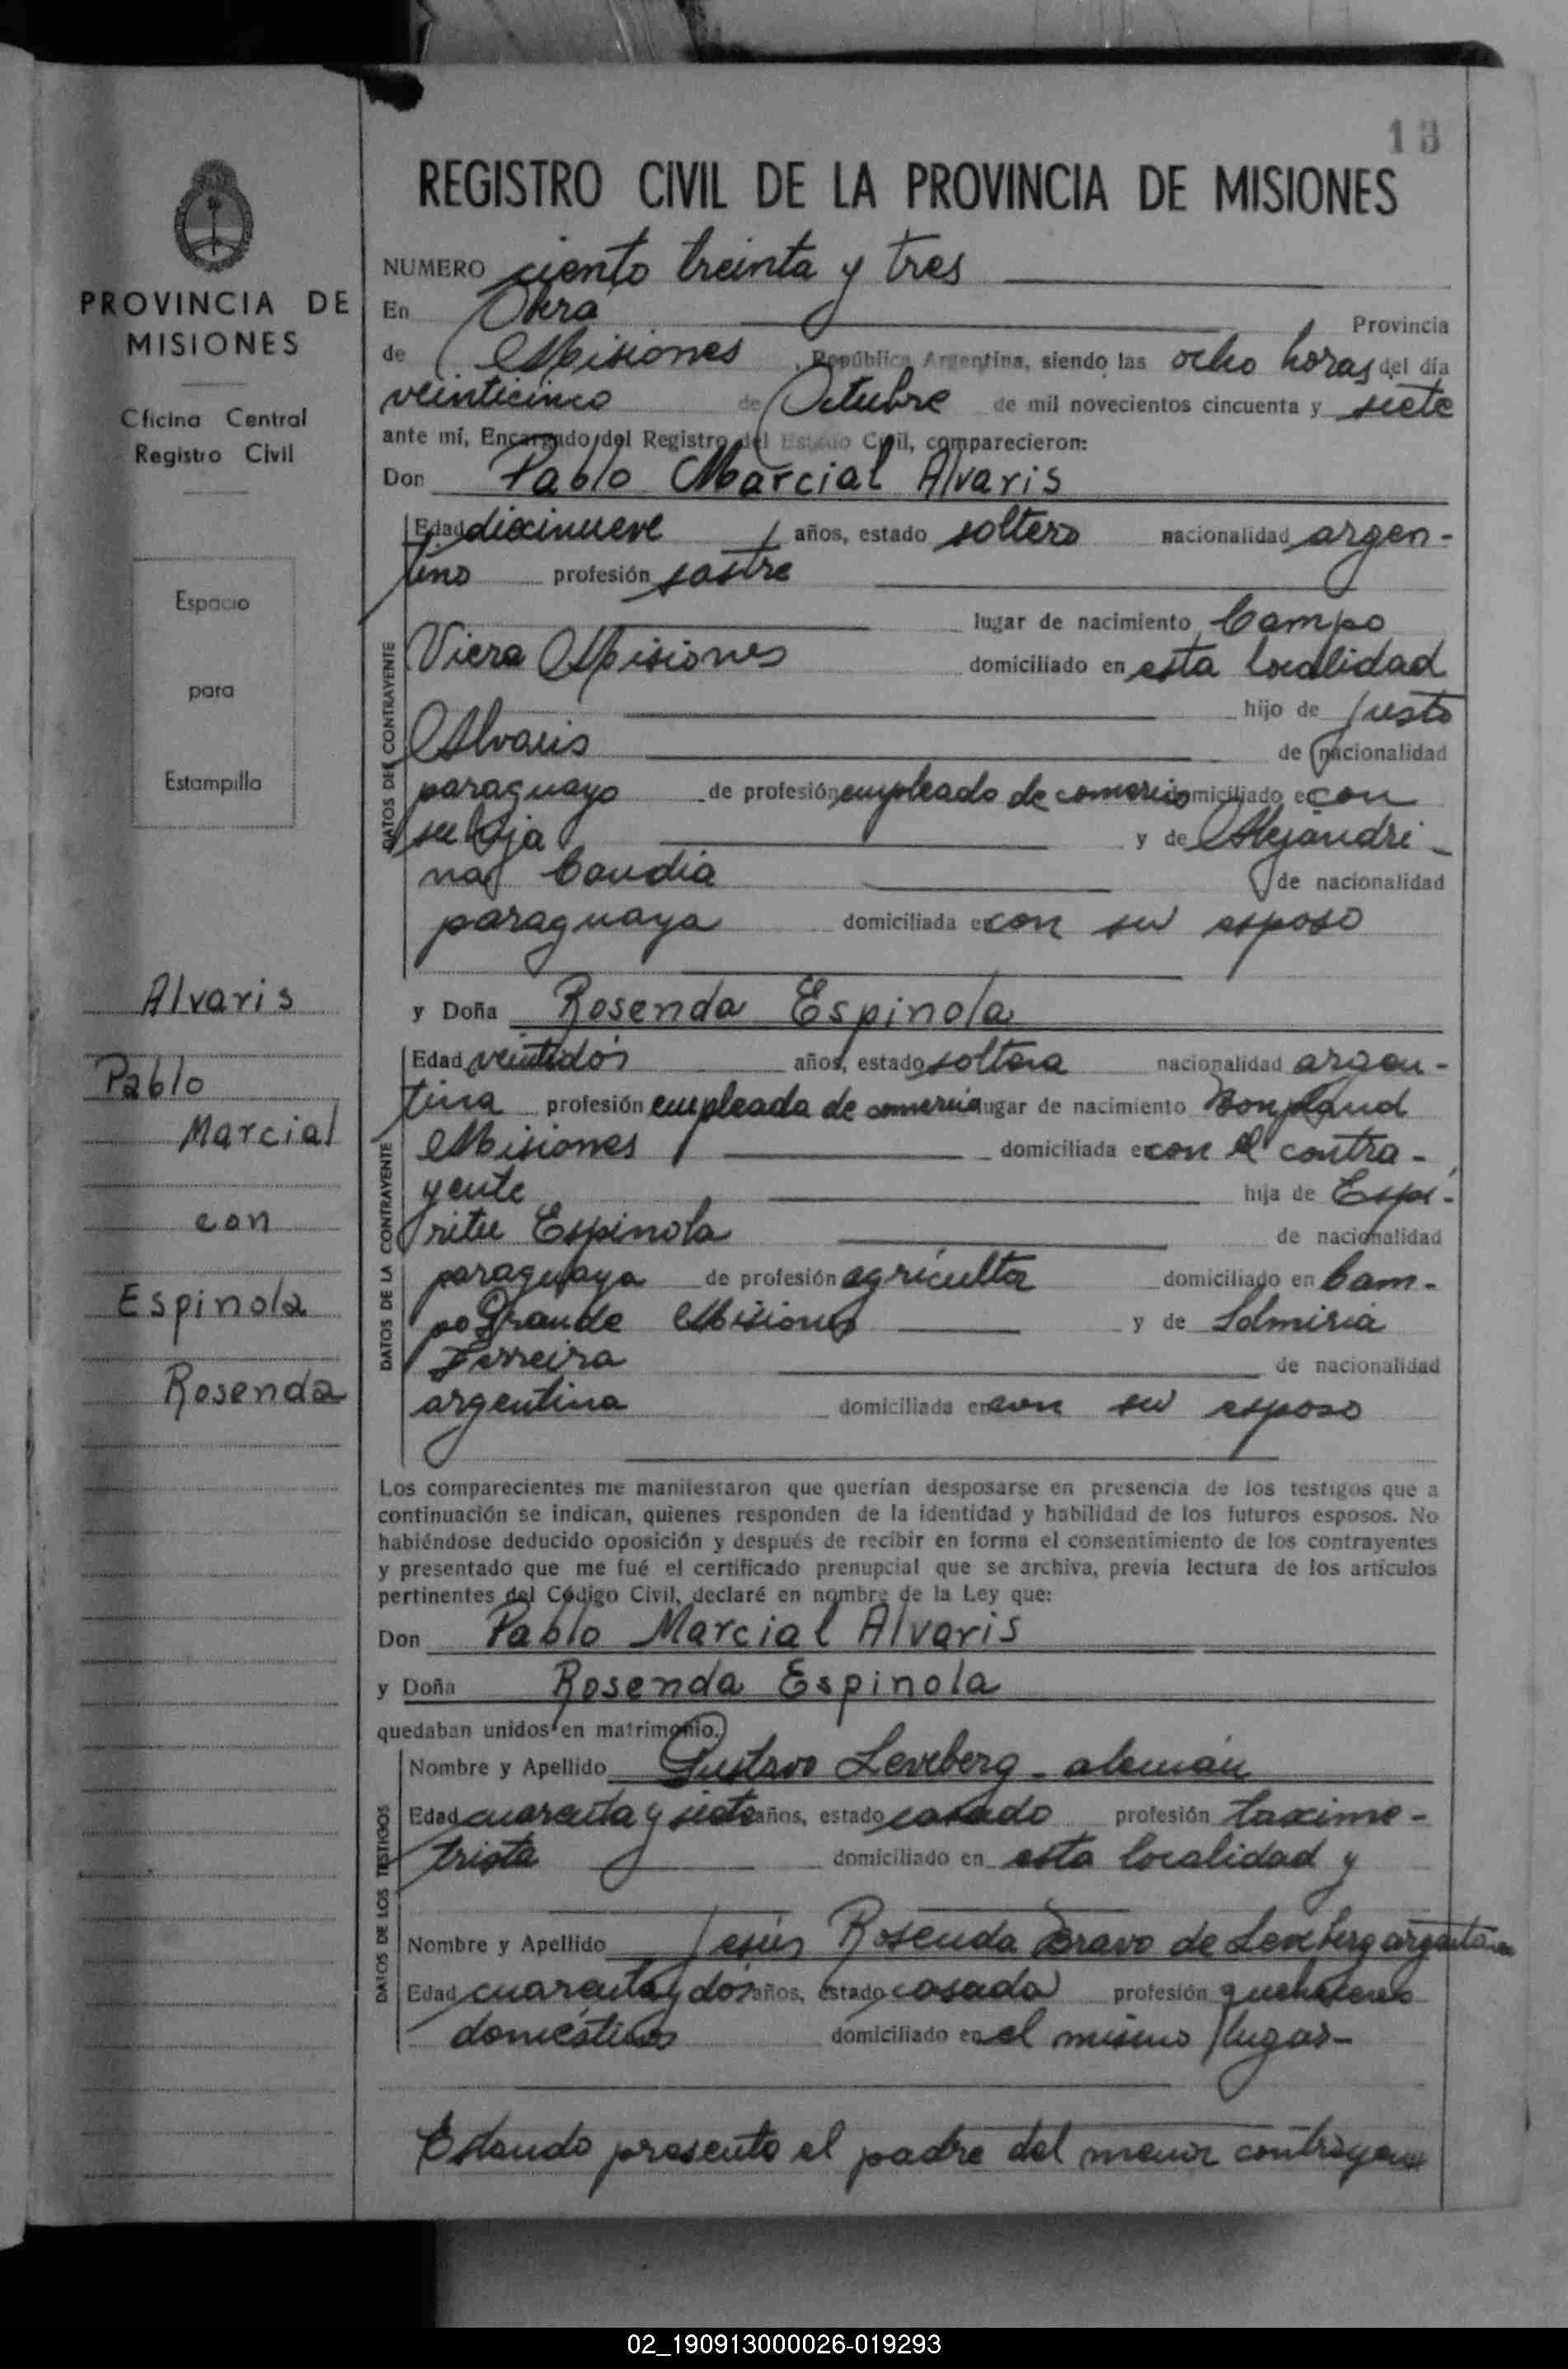 13
REGISTRO CIVIL DE LA PROVINCIA DE MISIONES
NUMERO ciento treinta y tres
En Oberá Provincia
de Misiones, República Argentina, siendo las ocho horas del día
veinticinco de Octubre de mil novecientos cincuenta y siete
ante mí, Encargado del Registro del Estado Civil, comparecieron:
Don Pablo Marcial Alvaris
Edad diecinueve años, estado soltero nacionalidad argen-
tino profesión sastre
lugar de nacimiento Campo
Viera Misiones domiciliado en esta localidad
hijo de Justo
Alvaris de nacionalidad
paraguayo de profesión empleado de comercio domiciliado en con
su hija y de Alejandri-
na Candia de nacionalidad
paraguaya domiciliada en con su esposo
DATOS DEL CONTRAYENTE
y Doña Rosenda Espinola
Edad veintidós años, estado soltera nacionalidad argen-
tina profesión empleada de comercio lugar de nacimiento Bonpland
Misiones domiciliada en con el contra-
yente hija de Espí-
ritu Espinola de nacionalidad
paraguaya de profesión agricultor domiciliado en Cam-
po Grande Misiones y de
Ferreira de nacionalidad
argentina domiciliada en con su esposo
DATOS DE LA CONTRAYENTE
Los comparecientes me manifestaron que querían desposarse en presencia de los testigos que a
continuación se indican, quienes responden de la identidad y habilidad de los futuros esposos. No
habiéndose deducido oposición y después de recibir en forma el consentimiento de los contrayentes
y presentado que me fué el certificado prenupcial que se archiva, previa lectura de los artículos
pertinentes del Código Civil, declaré en nombre de la Ley que:
Don Pablo Marcial Alvaris
y Doña Rosenda Espinola
quedaban unidos en matrimonio.
Nombre y Apellido Gustavo Leveberg - alemán
Edad cuarenta y siete años, estado casado profesión taxime-
trista domiciliado en esta localidad y
Nombre y Apellido Jesús Rosenda Bravo de Leveberg argentina
Edad cuarenta y dos años, estado casada profesión quehaceres
domésticos domiciliado en el mismo lugar-
DATOS DE LOS TESTIGOS
Estando presente el padre del menor contrayente
PROVINCIA DE
MISIONES
Oficina Central
Registro Civil
Espacio
para
Estampilla
Alvaris
Pablo
Marcial
con
Espinola
Rosenda
02_190913000026-019293